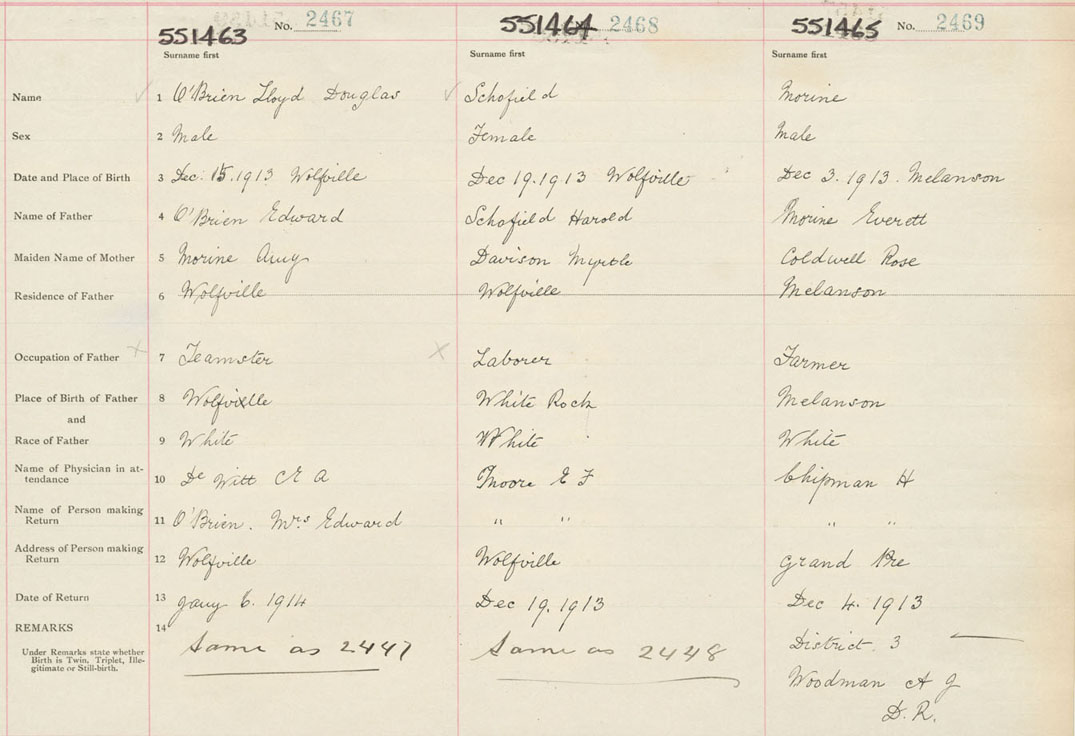 No. 2467 2468 No. 2469
551463 551464 551465
Surname first Surname first Surname first
Name 1 O'Brien Lloyd Douglas Schofield Morine
Sex 2 Male Female Male
Date and Place of Birth 3 Dec. 15. 1913 Wolfville Dec 19. 1913 Wolfville Dec 3. 1913. Melanson
Name of Father 4 O'Brien Edward Schofield Harold Morine Everett
Maiden Name of Mother 5 Morine Amy Davison Myrtle Coldwell Rose
Residence of Father 6 Wolfville Wolfville Melanson
Occupation of Father 7 Teamster Laborer Farmer
Place of Birth of Father 8 Wolfville White Rock Melanson
and
Race of Father 9 White White White
Name of Physician in at-
tendance 10 De Witt C E A Moore E F Chipman H
Name of Person making
Return 11 O'Brien. Mrs Edward " " " "
Address of Person making
Return 12 Wolfville Wolfville Grand Pre
Date of Return 13 Jany 6. 1914 Dec 19. 1913 Dec 4. 1913
REMARKS 14 Same as 2447 Same as 2448 District. 3
Under Remarks state whether
Birth is Twin, Triplet, Ille-
gitimate or Still-birth.
Woodman A G
D. R.